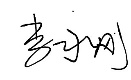 李永刚